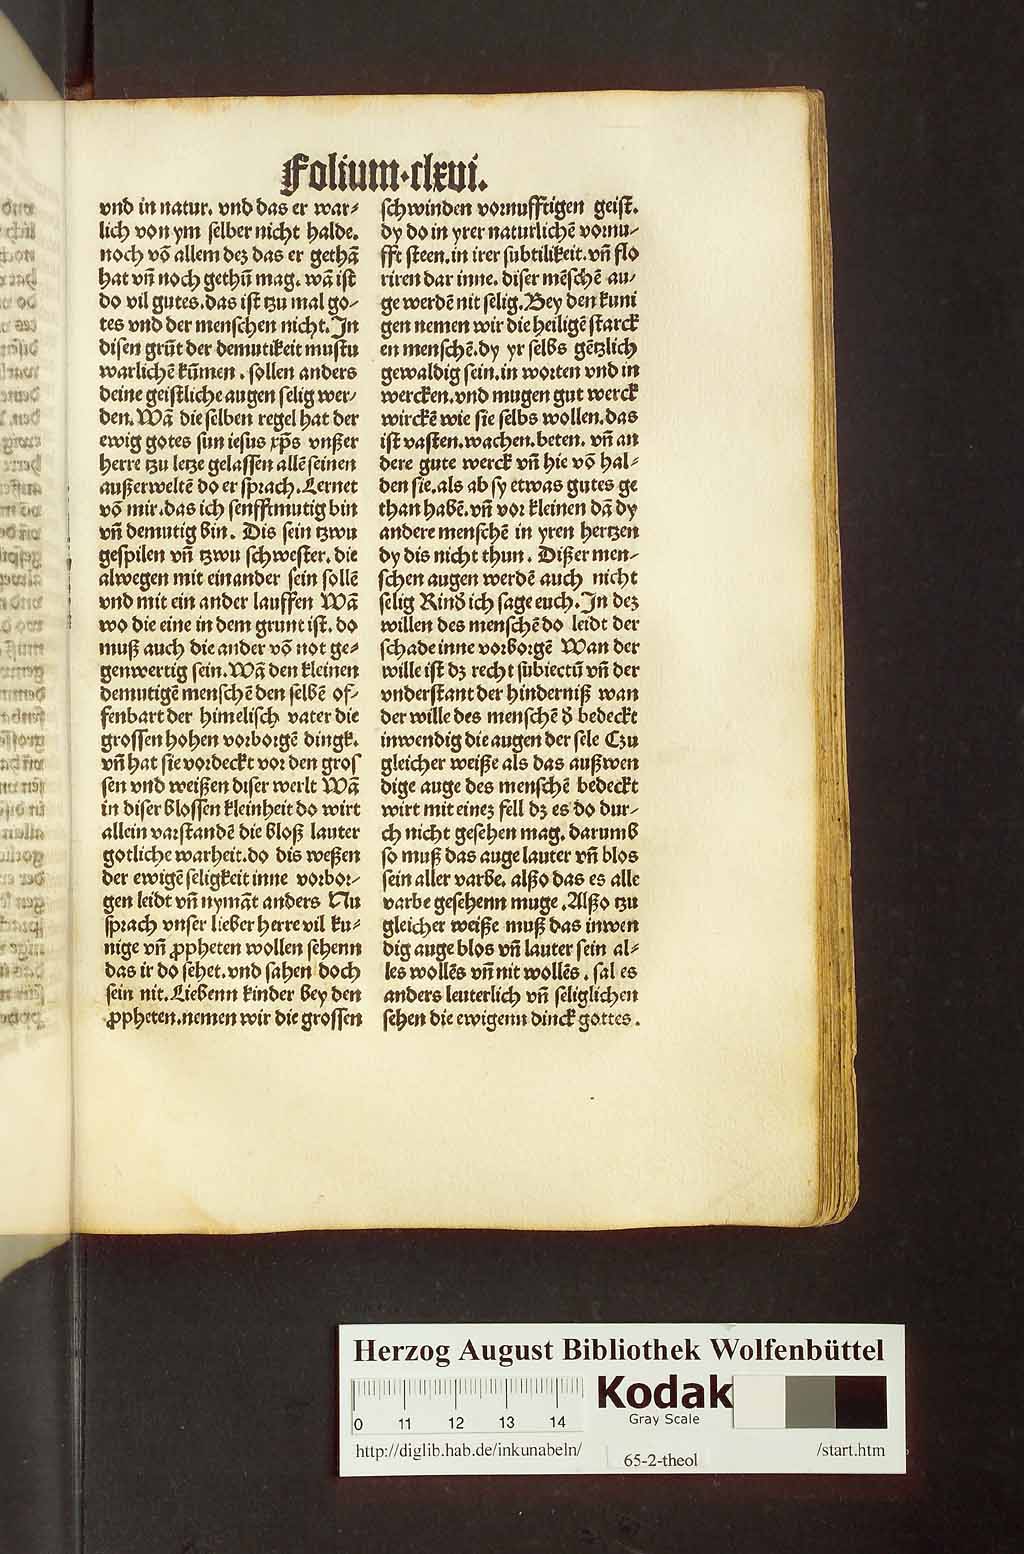 Folium·clxvi.
vnd in natur. vnd das er war⸗
lich von ym selber nicht halde.
noch võ allem dez das er gethã
hat vñ noch gethũ mag. wã ist
do vil gutes. das ist tzu mal go⸗
tes vnd der menschen nicht. In
disen grũt der demutikeit mustu
warlichẽ kũmen. sollen anders
deine geistliche augen selig wer⸗
den. Wã die selben regel hat der
ewig gotes sun iesus xp̃s vnßer
herre tzu letze gelassen allẽ seinen
außerweltẽ do er sprach. Lernet
võ mir. das ich senfftmutig bin
vñ demutig bin. Dis sein tzwu
gespilen vñ tzwu schwester. die
alwegen mit einander sein sollẽ
vnd mit ein ander lauffen Wã
wo die eine in dem grunt ist. do
muß auch die ander võ not ge⸗
genwertig sein. Wã den kleinen
demutigẽ menschẽ den selbẽ of⸗
fenbart der himelisch vater die
grossen hohen vorborgẽ dingk.
vñ hat sie vordeckt vor den gros
sen vnd weißen diser werlt Wã
in diser blossen kleinheit do wirt
allein varstandẽ die bloß lauter
gotliche warheit. do dis weßen
der ewigẽ seligkeit inne vorbor⸗
gen leidt vñ nymãt anders Nu
sprach vnser lieber herre vil ku⸗
nige vñ ꝓpheten wollen sehenn
das ir do sehet. vnd sahen doch
sein nit. Liebenn kinder bey den
ꝓpheten. nemen wir die grossen
schwinden vornufftigen geist.
dy do in yrer naturlichẽ vornu⸗
fft steen. in irer subtilikeit. vñ flo
riren dar inne. diser mẽschẽ au⸗
ge werdẽ nit selig. Bey den kuni
gen nemen wir die heiligẽ starck
en menschẽ. dy yr selbs gẽtzlich
gewaldig sein. in worten vnd in
wercken. vnd mugen gut werck
wirckẽ wie sie selbs wollen. das
ist vasten. wachen. beten. vñ an
dere gute werck vñ hie võ hal⸗
den sie. als ab sy etwas gutes ge
than habẽ. vñ vor kleinen dã dy
andere menschẽ in yren hertzen
dy dis nicht thun. Dißer men⸗
schen augen werdẽ auch nicht
selig Rinð ich sage euch. In dez
willen des menschẽ do leidt der
schade inne vorborgẽ Wan der
wille ist dz recht subiectũ vñ der
vnderstant der hinderniß wan
der wille des menschẽ ð bedeckt
inwendig die augen der sele Czu
gleicher weiße als das außwen
dige auge des menschẽ bedeckt
wirt mit einez fell dz es do dur⸗
ch nicht gesehen mag. darumb
so muß das auge lauter vñ blos
sein aller varbe. alßo das es alle
varbe gesehenn muge. Alßo tzu
gleicher weiße muß das inwen
dig auge blos vñ lauter sein al⸗
les wollẽs vñ nit wollẽs. sal es
anders leuterlich vñ seliglichen
sehen die ewigenn dinck gottes.
Herzog August Bibliothek Wolfenbüttel
Kodak
Gray Scale
0 11 12 13 14
http://diglib.hab.de/inkunabeln/
65-2-theol
/start.htm